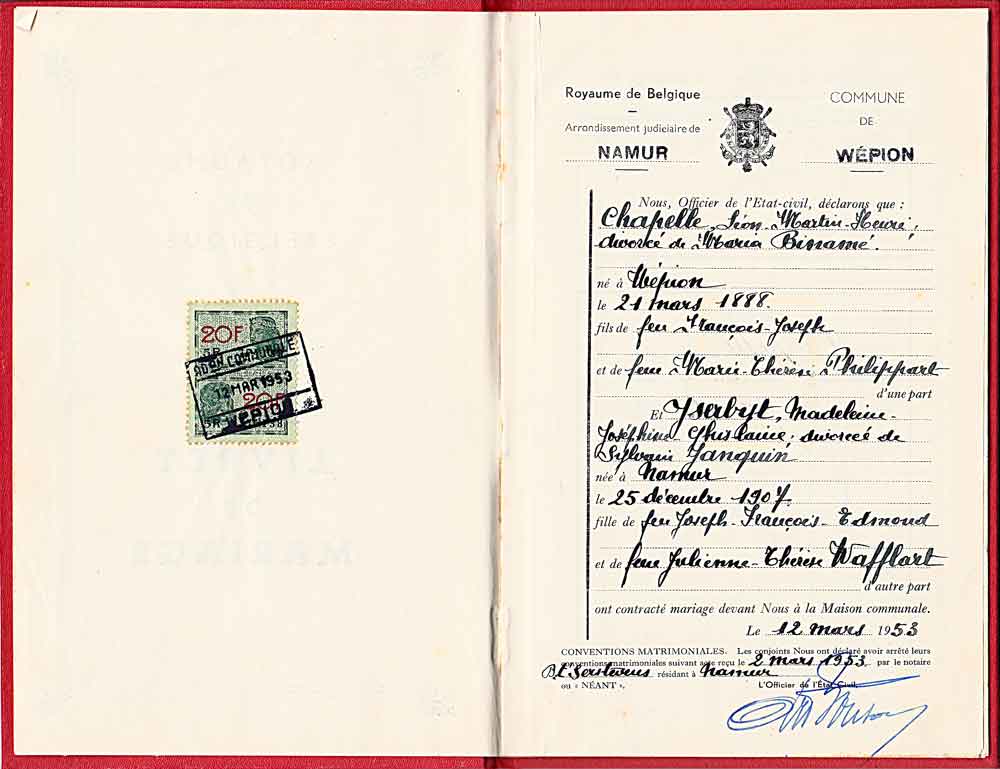 20F
ADON COMMUNALE
12 MAR 1953
20F
WÉPION
Royaume de Belgique
Arrondissement judiciaire de
NAMUR
COMMUNE
DE
WÉPION
Nous, Officier de l'Etat-civil, déclarons que :
Chapelle, Léon-Martin-Henri,
divorcé de Maria Binamé.
né à Wépion
le 21 mars 1888.
fils de feu François-Joseph
et de feue Marie-Thérèse Philippart
d'une part
Et Yserbyt, Madeleine-
Joséphine-Ghislaine, divorcée de
Sylvain Janquin
née à Namur
le 25 décembre 1907.
fille de feu Joseph-François-Edmond
et de feue Julienne-Thérèse Wafflart
d'autre part
ont contracté mariage devant Nous à la Maison communale.
Le 12 mars 1953
CONVENTIONS MATRIMONIALES. Les conjoints Nous ont déclaré avoir arrêté leurs
conventions matrimoniales suivant acte reçu le 2 mars 1953 par le notaire
résidant à Namur
ou « NÉANT ».
L'Officier de l'État Civil,